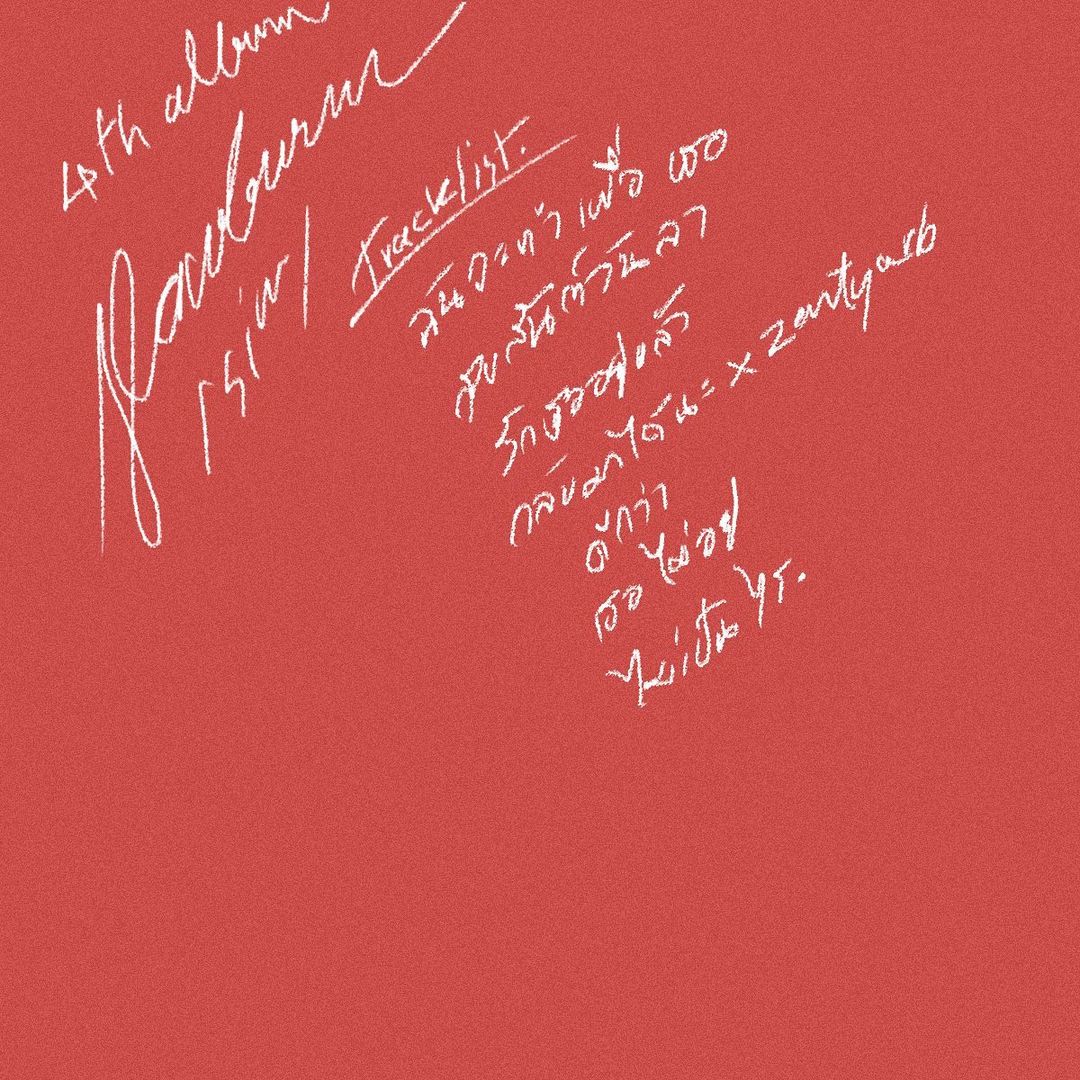 4th album
Slowburn
Tracklist.
ฉันจะทำเพื่อเธอ
จูบฉัน
รักเธออยู่แล้ว
กลับมาได้นะ x zentyarb
ดีกว่า
เธอไม่อยู่
ไม่เป็นไร.